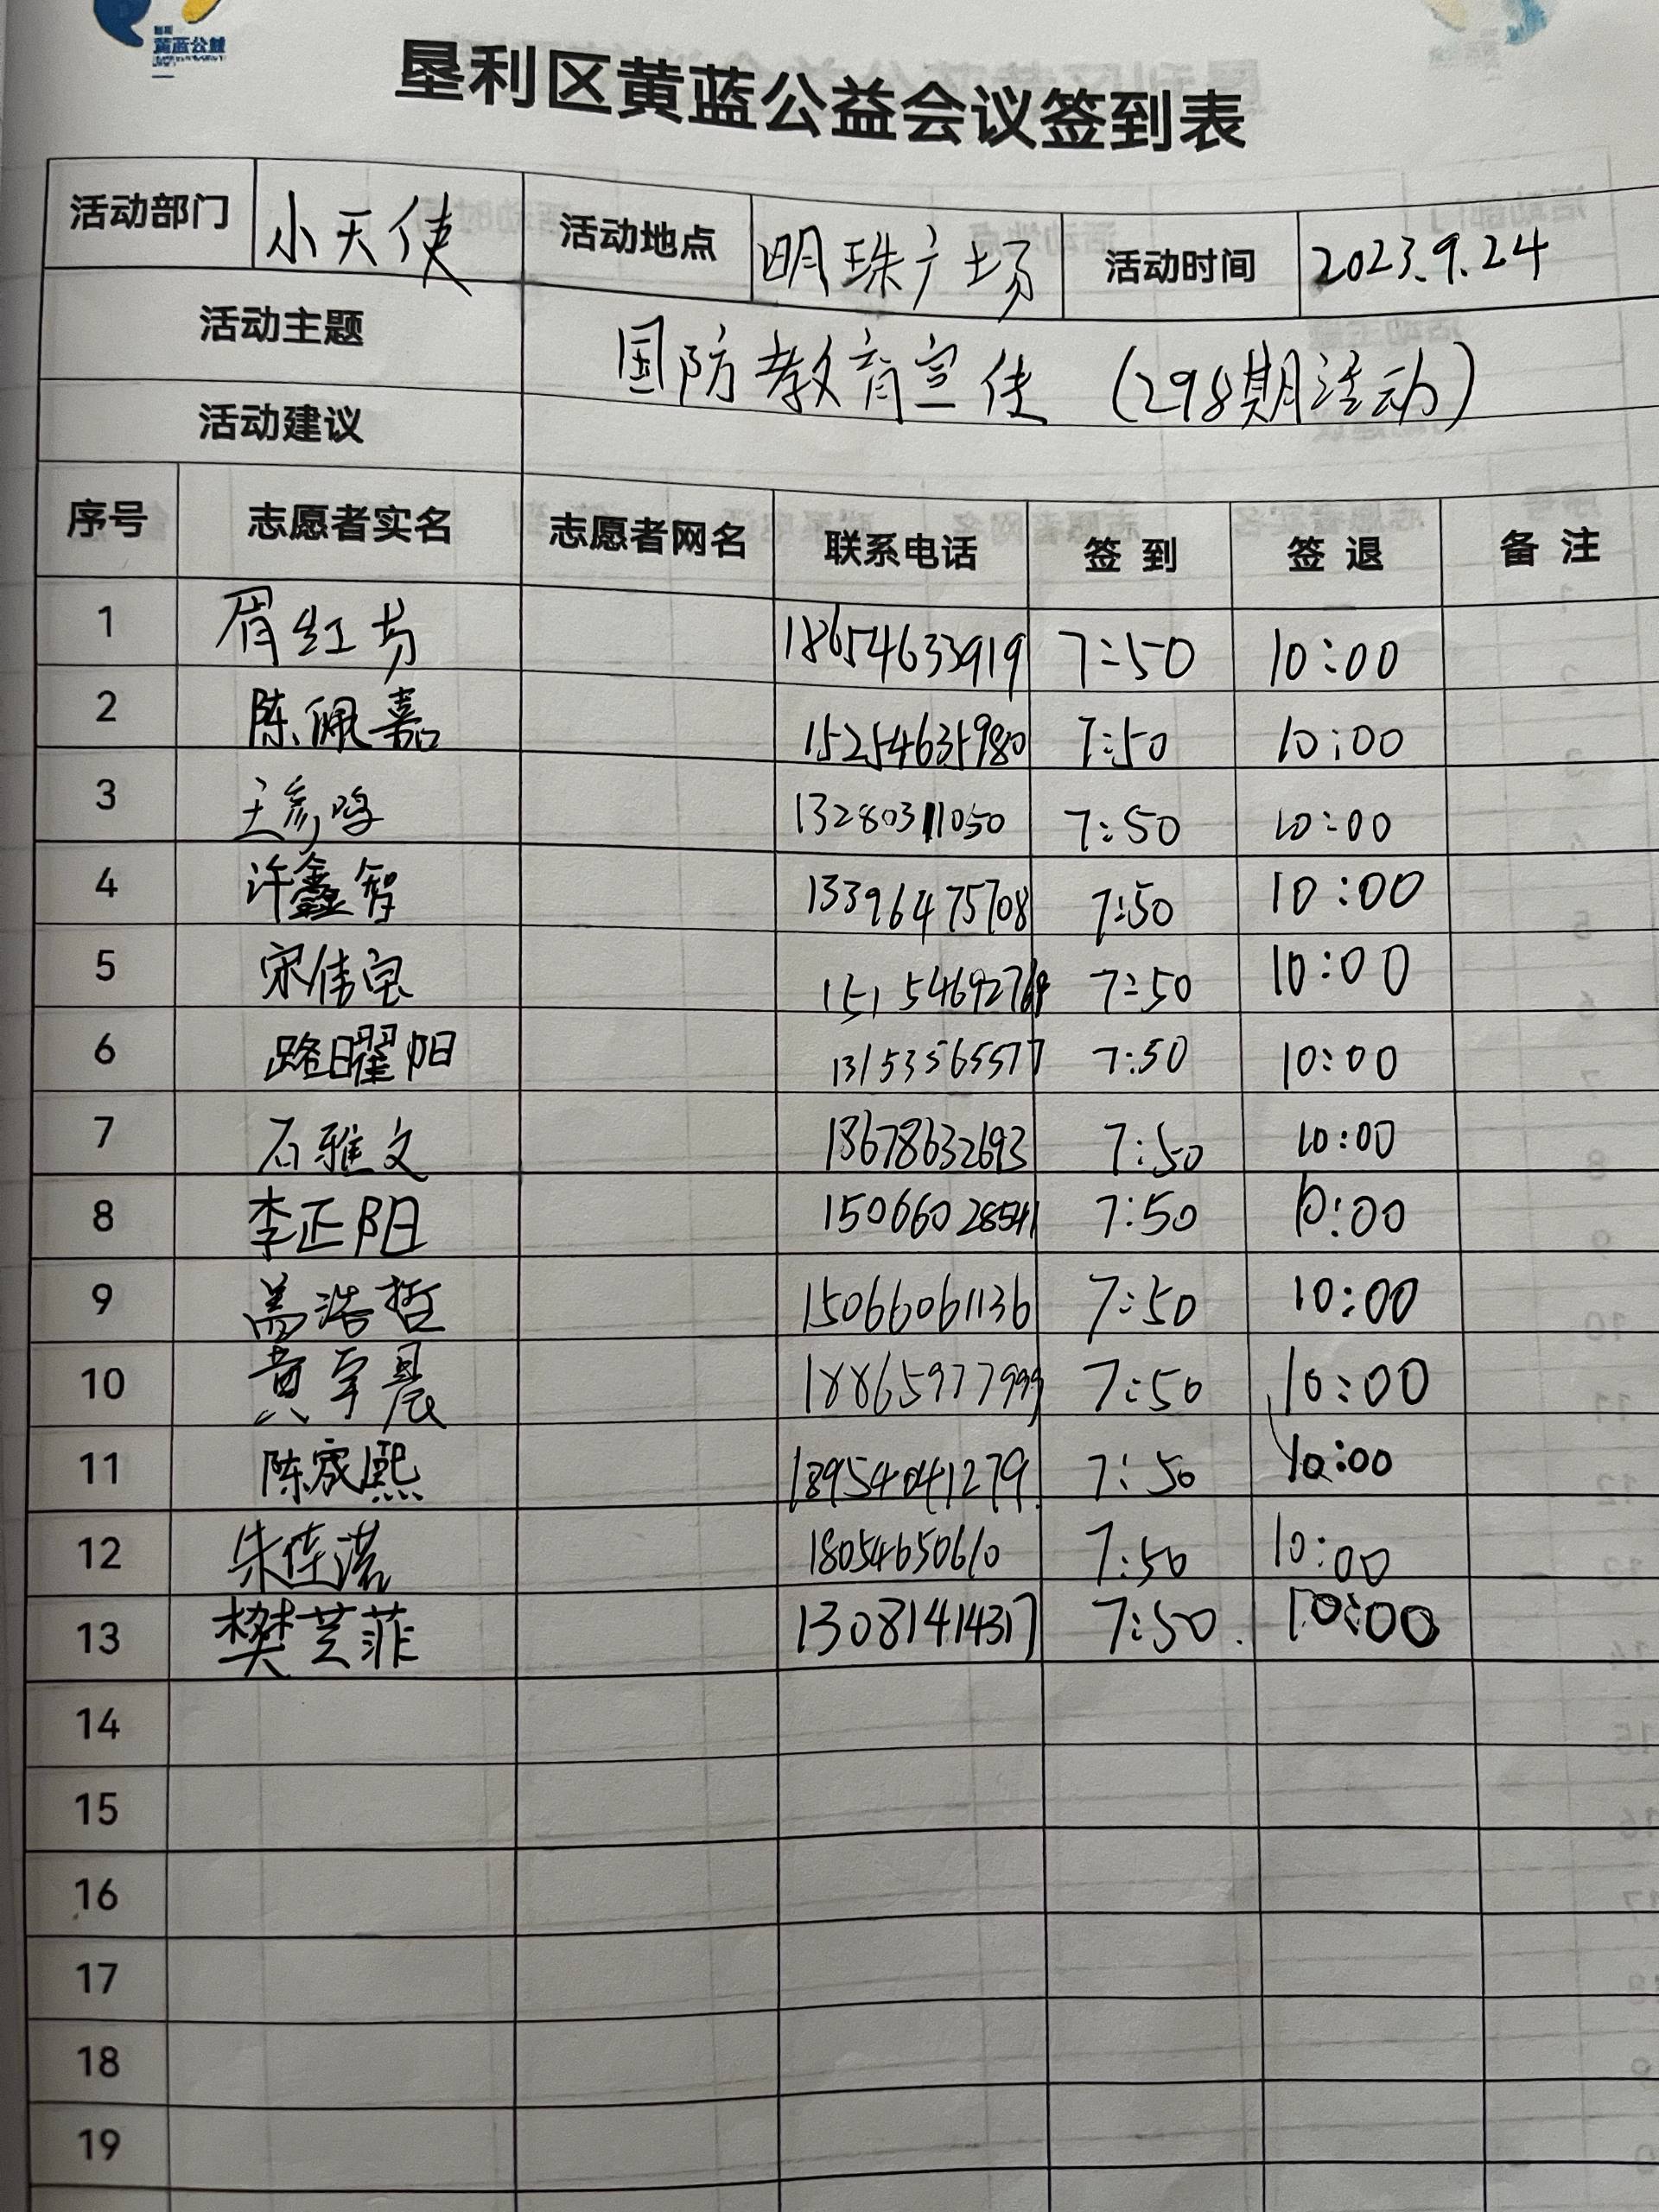 黄蓝公益
垦利区黄蓝公益会议签到表
活动部门 小天使 活动地点 明珠广场 活动时间 2023.9.24
活动主题 国防教育宣传（298期活动）
活动建议
序号 志愿者实名 志愿者网名 联系电话 签到 签退 备注
1 红芳 18654633919 7:50 10:00
2 陈佩嘉 15254635980 7:50 10:00
3 王彦鸣 13280311050 7:50 10:00
4 许鑫智 13396475708 7:50 10:00
5 宋佳宝 7:50 10:00
6 路曜阳 13153565577 7:50 10:00
7 石雅文 13678632693 7:50 10:00
8 李正阳 15066028541 7:50 10:00
9 盖浩哲 15066061136 7:50 10:00
10 黄宇晨 18865977999 7:50 10:00
11 陈宬熙 18954041279 7:50 10:00
12 朱佳诺 18054650610 7:50 10:00
13 樊芝菲 13081414317 7:50 10:00
14
15
16
17
18
19